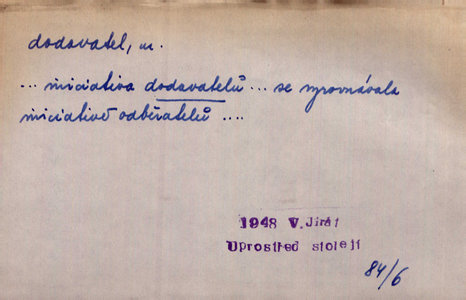 dodavatel, m.
... iniciativa dodavatelů ... se vyrovnávala
iniciativě odběratelů ....
1948 V. Jirát
Uprostřed století
84/6